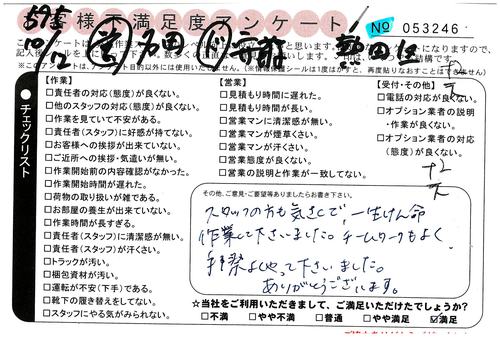 お客様不満足度アンケート
№ 053246
10/12
石田
熱田区
チェックリスト
【作業】
□責任者の対応(態度)が良くない。
□他のスタッフの対応(態度)が良くない。
□作業を見ていて不安がある。
□責任者(スタッフ)に好感が持てない。
□お客様への挨拶が出来ていない。
□ご近所への挨拶・気遣いが無い。
□作業開始前の内容確認がなかった。
□作業開始時間が遅れた。
□荷物の取り扱いが雑である。
□お部屋の養生が出来ていない。
□作業時間が長すぎる。
□責任者(スタッフ)に清潔感が無い。
□責任者(スタッフ)が汗くさい。
□トラックが汚い。
□梱包資材が汚い。
□運転が不安(下手)である。
□靴下の履き替えをしてない。
□スタッフにやる気がみられない。
【営業】
□見積もり時間に遅れた。
□見積もり時間が長い。
□営業マンに清潔感が無い。
□営業マンが煙草くさい。
□営業マンが汗くさい。
□営業態度が良くない。
□営業の説明と作業が一致してない。
【受付・その他】
□電話の対応が良くない。
□オプション業者の説明
・作業が良くない。
□オプション業者の対応
(態度)が良くない。
その他、ご意見・ご要望等ありましたらお書き下さい。
スタッフの方も気さくで、一生けん命
作業して下さいました。チームワークもよく、
手際よくやって下さいました。
ありがとうございます。
☆当社をご利用いただきまして、ご満足いただけたでしょうか?
□不満 □やや不満 □普通 □やや満足 ☑満足